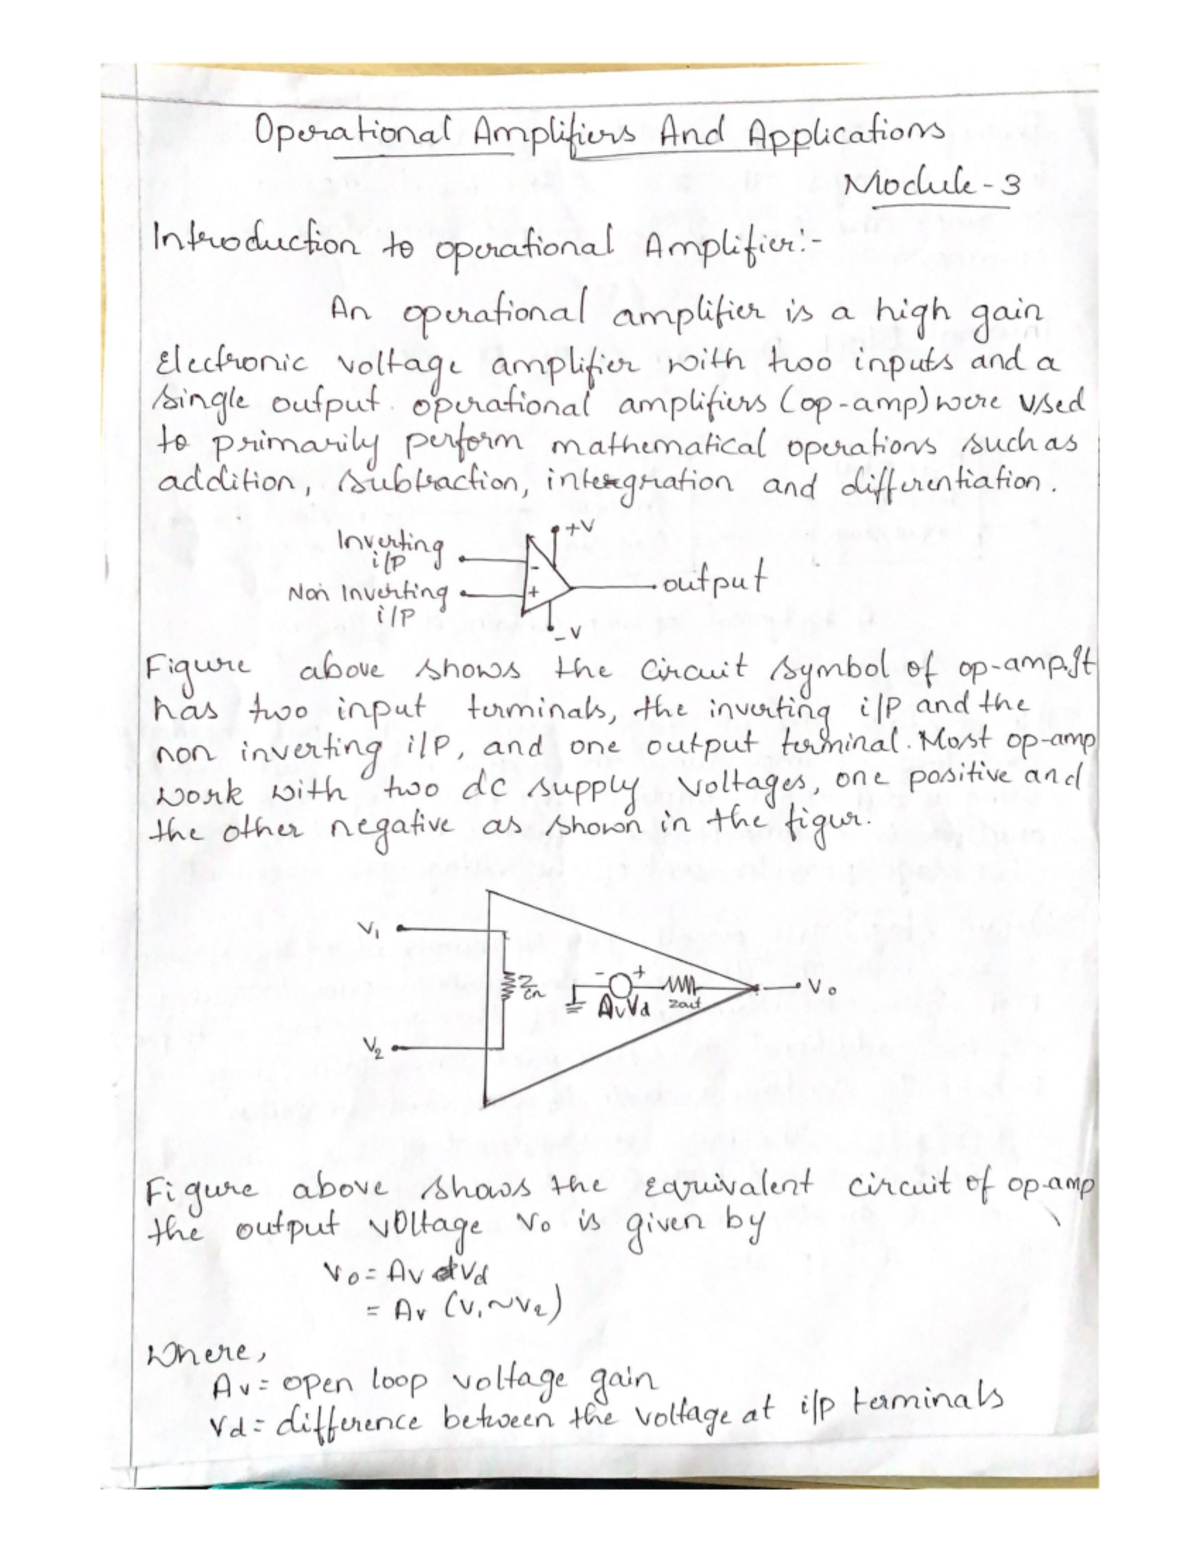 Operational Amplifiers And Applications
Module-3
Introduction to operational Amplifier:-
An operational amplifier is a high gain
Electronic voltage amplifier with two inputs and a
single output. operational amplifiers (op-amp) were used
to primarily perform mathematical operations such as
addition, subtraction, intergration and differentiation.
+V
Inverting
i/P
-
Non Inverting
i/P
+
output
-V
Figure above shows the circuit symbol of op-amp.It
has two input terminals, the inverting i/P and the
non inverting i/P, and one output terminal. Most op-amp
work with two dc supply voltages, one positive and
the other negative as shown in the figur.
V1
Zin
- +
AvVd
Zout
Vo
V2
Figure above shows the equivalent circuit of op-amp
the output voltage Vo is given by
Vo = Av Vd
= Av (V1~V2)
Where,
Av = open loop voltage gain
Vd = difference between the voltage at i/p terminals